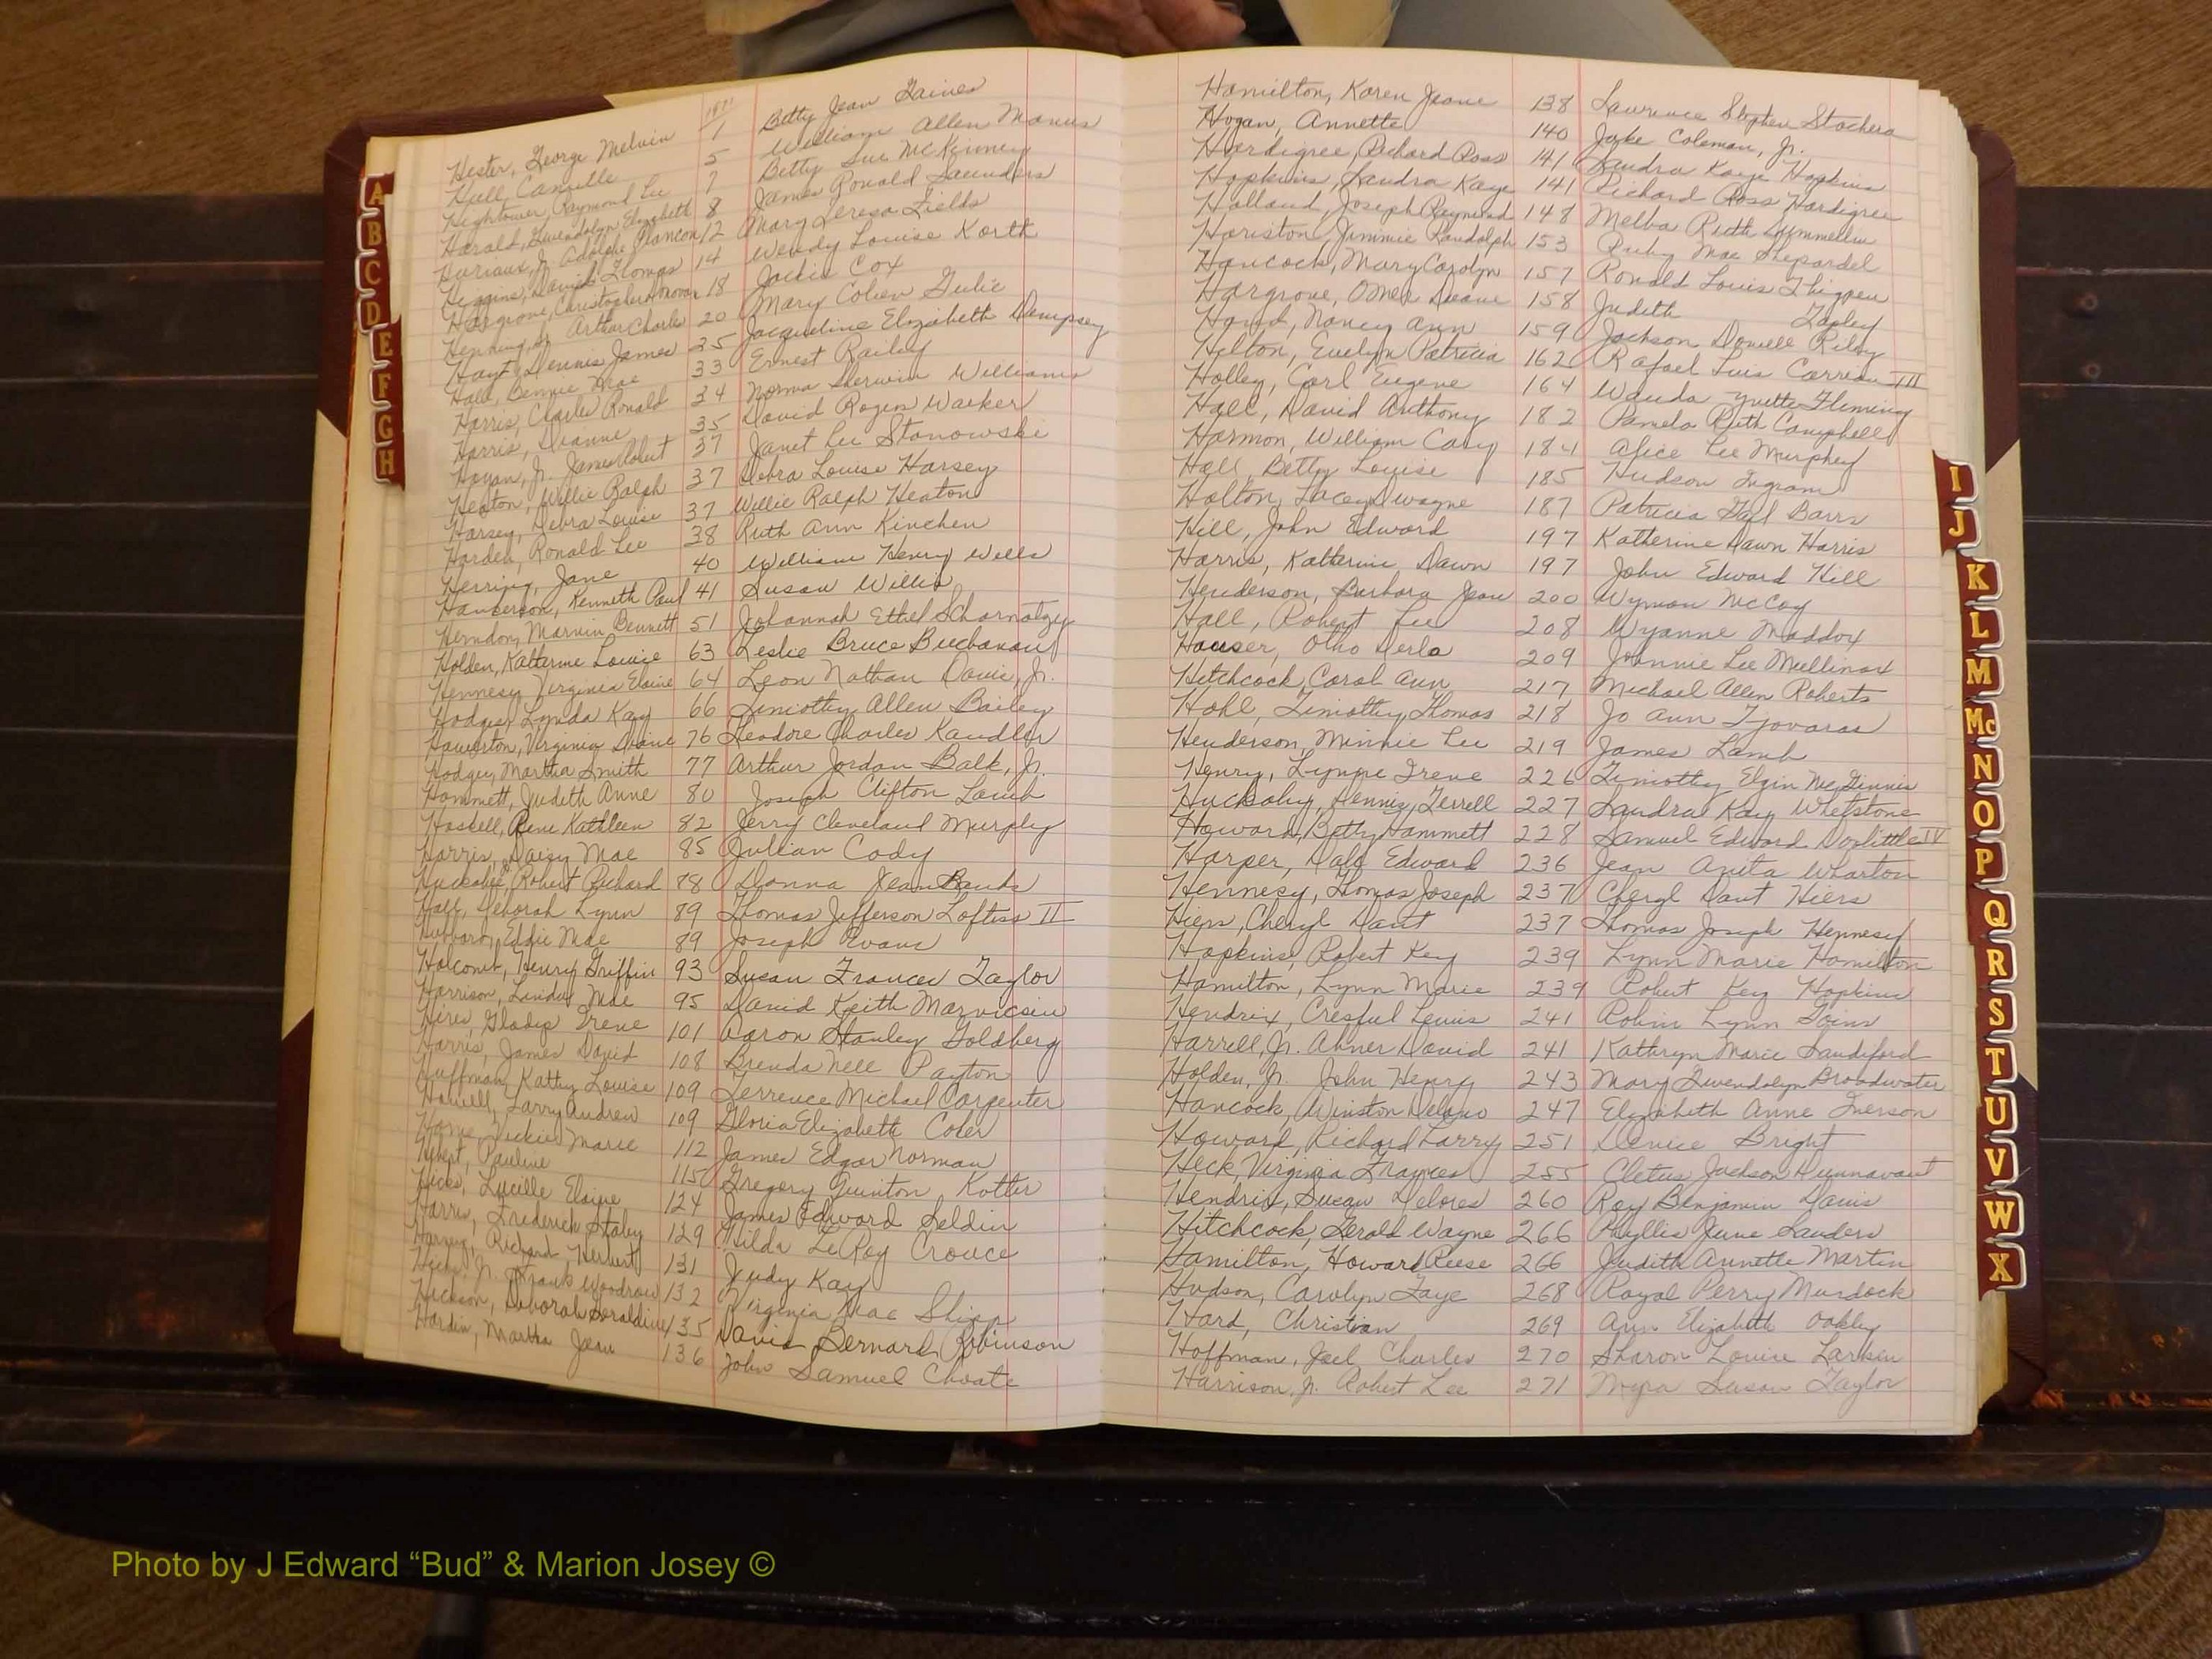 1971
Hester, George Melvin 1 Betty Jean Gaines
Hall, Camille 5 William Allen Manus
Hightower, Raymond Lee 7 Betty Sue McKinney
Harald, Gwendolyn Elizabeth 8 James Ronald Saunders
Jr. Adolphe Plancon 12 Mary Teresa Fields
Higgins, David Thomas 14 Wendy Louise Korth
Hargrove, Christopher Donovan 18 Jackie Cox
Henning, Jr. Arthur Charles 20 Mary Cohen Gulic
Hayt, Dennis James 25 Jacqueline Elizabeth Dempsey
Hall, Bennie Mae 33 Ernest Railey
Harris, Charles Ronald 34 Norma Sherwin Williams
Harris, Dianne 35 David Rogers Walker
Hogan, Jr. James Robert 37 Janet Lee Stanowski
Heaton, Willie Ralph 37 Debra Louise Harsey
Harsey, Debra Louise 37 Willie Ralph Heaton
Harden, Ronald Lee 38 Ruth Ann Kinchen
Herring, Jane 40 William Henry Wells
Hanberson, Kenneth Paul 41 Susan Willis
Herndon, Marvin Bennett 51 Johannah Ethel
Holden, Katherine Louise 63 Leslie Bruce Buchanan
Hennesy, Virginia Elaine 64 Leon Nathan Davis, Jr.
Hodges, Lynda Kay 66 Timothy Allen Bailey
Haverston, Virginia Diane 76 Theodore Charles Kandler
Hodges, Martha Smith 77 Arthur Jordan Balk, Jr.
Hammett, Judith Anne 80 Joseph Clifton Lamb
Haskell, Rene Kathleen 82 Jerry Cleveland Murphy
Harris, Daisy Mae 85 Jullian Cody
Huckabee, Robert Richard 88 Donna Jean Bands
Hall, Deborah Lynn 89 Thomas Jefferson Loftiss II
Hubbard, Eddie Mae 89 Joseph Evans
Holcomb, Henry Griffin 93 Susan Frances Taylor
Harrison, Linda Mae 95 David Keith Marvicsin
Hires, Gladys Irene 101 Aaron Stanley Goldberg
Harris, James David 108 Brenda Nell Payton
Huffman, Kathy Louise 109 Terrence Michael Carpenter
Howell, Larry Andrew 109 Gloria Elizabeth Coker
Horne, Vickie Marie 112 James Edgar Norman
Hebert, Pauline 115 Gregory Quinton Kotter
Hicks, Lucille Elaine 124 James Edward Seldin
Harris, Frederick Staley 129 Hilda LeRoy Crouce
Harvey, Richard Herbert 131 Judy Kay
Hicks, Jr. Frank Woodrow 132 Virginia Mae Shipp
Hickson, Deborah Geraldine 135 David Bernard Robinson
Hardin, Martha Jean 136 John Samuel Choate
Hamilton, Karen Jeane 138 Lawrence Stephen Stachera
Hogan, Annette 140 Jake Coleman, Jr.
Hardigree, Richard Ross 141 Sandra Kaye Hopkins
Hopkins, Sandra Kaye 141 Richard Ross Hardigree
Holland, Joseph Raymond 148 Melba Ruth Summerlin
Hariston, Jimmie Randolph 153 Ruby Mae Shepardel
Hancock, Mary Carolyn 157 Ronald Louis Thigpen
Hargrove, Omer Deane 158 Judith Tapley
Hand, Nancy Ann 159 Jackson Donell Riley
Hilton, Evelyn Patricia 162 Rafael Luis Carrion III
Holley, Carl Eugene 164 Wanda Yvette Fleming
Hall, David Anthony 182 Pamela Ruth Campbell
Harmon, William Cary 184 Alice Lee Murphey
Hall, Betty Louise 185 Hudson Ingram
Holton, Lacey Dwayne 187 Patricia Gail Barrs
Hill, John Edward 197 Katherine Dawn Harris
Harris, Katherine Dawn 197 John Edward Hill
Henderson, Barbara Jean 200 Wyman McCoy
Hall, Robert Lee 208 Wyanne Maddox
Hauser, Otho Derla 209 Johnnie Lee Mullinax
Hitchcock, Carol Ann 217 Michael Allen Roberts
Hohl, Timothy Thomas 218 Jo Ann Tjovaras
Henderson, Minnie Lee 219 James Lamb
Henry, Lynne Irene 226 Timothy Elgin McGinnis
Huckaby, Dennis Terrell 227 Sandral Kay Whetstone
Howard, Betty Hammett 228 Samuel Edward Doolittle IV
Harper, Dale Edward 236 Jean Anita Wharton
Hennesy, Thomas Joseph 237 Cheryl Dant Hiers
Hiers, Cheryl Dant 237 Thomas Joseph Hennesy
Hopkins, Robert Key 239 Lynn Marie Hamilton
Hamilton, Lynn Marie 239 Robert Key Hopkins
Hendrix, Cresful Lewis 241 Robin Lynn Goins
Harrell, Jr. Abner David 241 Kathryn Marie Sandiford
Holden, Jr. John Henry 243 Mary Gwendolyn Broadwater
Hancock, Winston Delano 247 Elizabeth Anne Iverson
Howard, Richard Larry 251 Denice Bright
Heck, Virginia Frances 255 Cletus Jackson Dunnavant
Hendrix, Susan Delores 260 Roy Benjamin Davis
Hitchcock, Gerald Wayne 266 Phyllis June Sanders
Hamilton, Howard Reese 266 Judith Annette Martin
Hudson, Carolyn Faye 268 Royal Perry Murdock
Hard, Christian 269 Ann Elizabeth Oakley
Hoffman, Joel Charles 270 Sharon Louise Larsen
Harrison, Jr. Robert Lee 271 Myra Susan Taylor
A
B
C
D
E
F
G
H
I
J
K
L
M
Mc
N
O
P
Q
R
S
T
U
V
W
X
Photo by J Edward “Bud” & Marion Josey ©